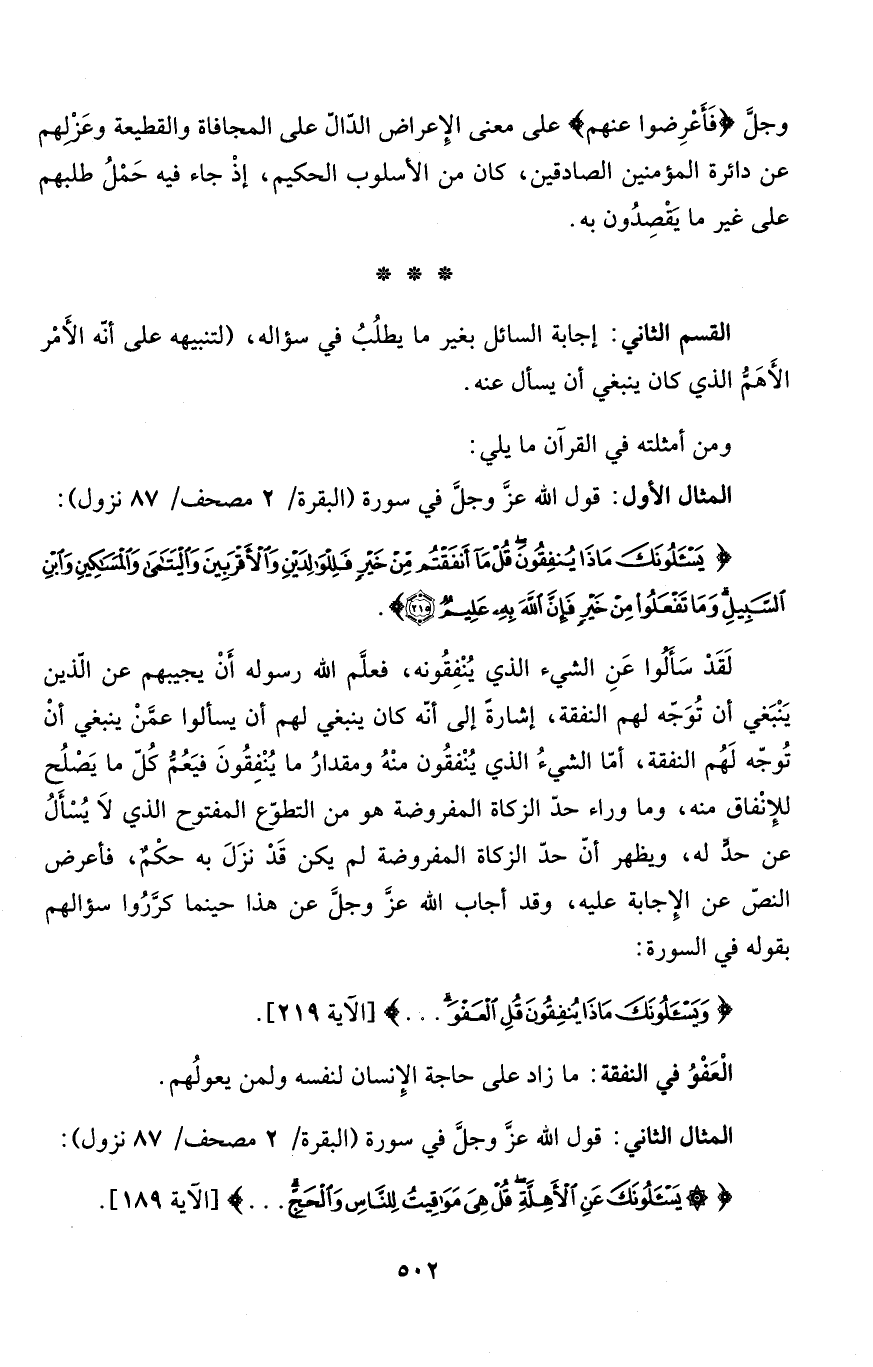 وجلَّ ﴿فَأَعْرِضوا عنهم﴾ على معنى الإِعراض الدّالّ على المجافاة والقطيعة وعَزْلِهم
عن دائرة المؤمنين الصادقين، كان من الأسلوب الحكيم، إذْ جاء فيه حَمْلُ طلبهم
على غير ما يَقْصِدُون به.
* * *
القسم الثاني: إجابة السائل بغير ما يطلُبُ في سؤاله، (لتنبيهه على أنّه الأَمْر
الأَهَمُّ الذي كان ينبغي أن يسأل عنه.
ومن أمثلته في القرآن ما يلي:
المثال الأول: قول الله عزَّ وجلَّ في سورة (البقرة/ ٢ مصحف/ ٨٧ نزول):
﴿ يَسْـَٔلُونَكَ مَاذَا يُنفِقُونَۖ قُلْ مَآ أَنفَقْتُم مِّنْ خَيْرٍ فَلِلْوَٰلِدَيْنِ وَٱلْأَقْرَبِينَ وَٱلْيَتَٰمَىٰ وَٱلْمَسَٰكِينِ وَٱبْنِ
ٱلسَّبِيلِۗ وَمَا تَفْعَلُوا۟ مِنْ خَيْرٍ فَإِنَّ ٱللَّهَ بِهِۦ عَلِيمٌ ٢١٥﴾.
لَقَدْ سَأَلُوا عَنِ الشيء الذي يُنْفِقُونه، فعلَّم الله رسوله أَنْ يجيبهم عن الّذين
يَنْبَغي أن تُوَجّه لهم النفقة، إشارةً إلى أنّه كان ينبغي لهم أن يسألوا عمَّنْ ينبغي أنْ
تُوجّه لَهُم النفقة، أمّا الشيءُ الذي يُنْفقُون منْهُ ومقدارُ ما يُنْفِقُونَ فيَعُمُّ كُلّ ما يَصْلُح
للإِنْفاق منه، وما وراء حدّ الزكاة المفروضة هو من التطوّع المفتوح الذي لاَ يُسْأَلُ
عن حدٍّ له، ويظهر أنّ حدّ الزكاة المفروضة لم يكن قَدْ نزَلَ به حكْمٌ، فأعرض
النصّ عن الإِجابة عليه، وقد أجاب الله عزَّ وجلَّ عن هذا حينما كرَّرُوا سؤالهم
بقوله في السورة:
﴿ وَيَسْـَٔلُونَكَ مَاذَا يُنفِقُونَ قُلِ ٱلْعَفْوَۗ . . .﴾ [الآية ٢١٩].
الْعَفْوُ في النفقة: ما زاد على حاجة الإِنسان لنفسه ولمن يعولُهم.
المثال الثاني: قول الله عزَّ وجلَّ في سورة (البقرة/ ٢ مصحف/ ٨٧ نزول):
﴿ ۞ يَسْـَٔلُونَكَ عَنِ ٱلْأَهِلَّةِۖ قُلْ هِىَ مَوَٰقِيتُ لِلنَّاسِ وَٱلْحَجِّۗ . . .﴾ [الآية ١٨٩].
٥٠٢